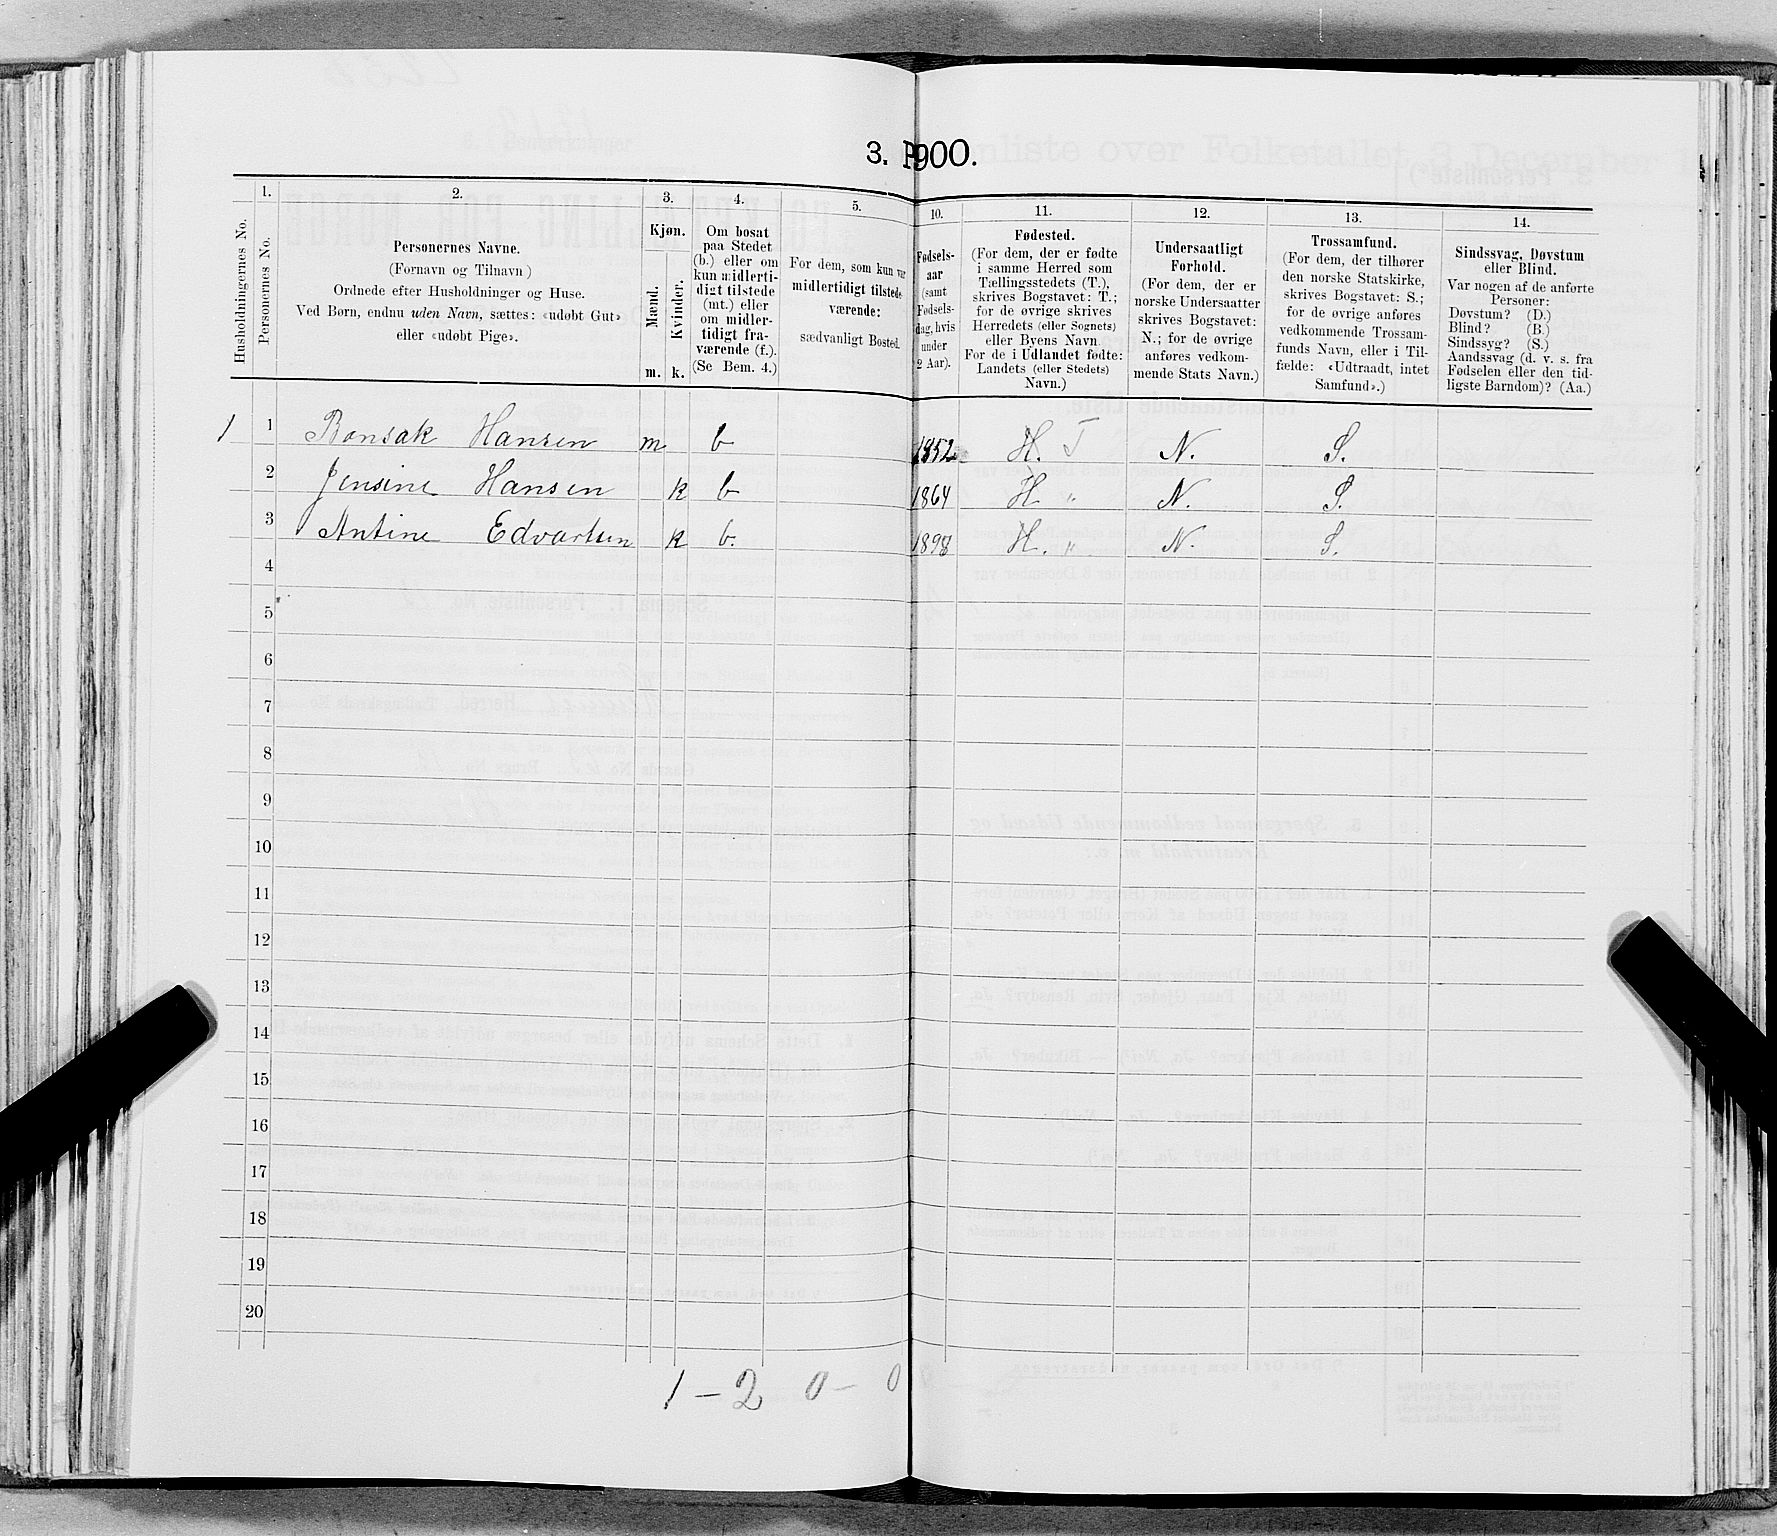 3. P900.
1.
2.
3.
4.
5.
10.
11.
12.
13.
14.
Husholdningernes No.
Personernes No.
Personernes Navne.
(Fornavn og Tilnavn)
Ordnede efter Husholdninger og Huse.
Ved Børn, endnu uden Navn, sættes: «udøbt Gut»
eller «udøbt Pige».
Kjøn.
Mænd.
Kvinder.
m. k.
Om bosat
paa Stedet
(b.) eller om
kun midlerti-
digt tilstede
(mt.) eller
om midler-
tidigt fra-
værende (f.).
(Se Bem. 4.)
For dem, som kun var
midlertidigt tilstede-
værende:
sædvanligt Bosted.
Fødsels-
aar
(samt
Fødsels-
dag, hvis
under
2 Aar).
Fødested.
(For dem, der er fødte
i samme Herred som
Tællingsstedets (T.),
skrives Bogstavet: T.;
for de øvrige skrives
Herredets (eller Sognets)
eller Byens Navn.
For de i Udlandet fødte:
Landets (eller Stedets)
Navn.)
Undersaatligt
Forhold.
(For dem, der er
norske Undersaatter
skrives Bogstavet:
N.; for de øvrige
anføres vedkom-
mende Stats Navn.)
Trossamfund.
(For dem, der tilhører
den norske Statskirke,
skrives Bogstavet: S.;
for de øvrige anføres
vedkommende Trossam-
funds Navn, eller i Til-
fælde: «Udtraadt, intet
Samfund».)
Sindssvag, Døvstum
eller Blind.
Var nogen af de anførte
Personer:
Døvstum? (D.)
Blind? (B.)
Sindssyg? (S.)
Aandssvag (d. v. s. fra
Fødselen eller den tid-
ligste Barndom)? (Aa.)
1 1 Bonsak Hansen m b 1852 H. T N. S.
2 Jensine Hansen k b 1864 H " N. S.
3 Antine Edvartsen k b. 1898 H. " N. S.
4
5
6
7
8
9
10
11
12
13
14
15
16
17
18
19
20
1 – 2 0 – 0